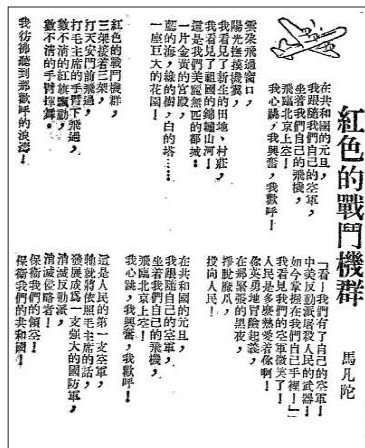 紅色的戰鬥機群
馬凡陀
在共和國的元旦,
我跟隨我們自己的空軍,
坐着我們自己的飛機,
飛臨北京上空!
我心跳,我興奮,我歡呼!
雲朵飛過窗口,
陽光撫摸機翼,
我看見了新生的田地、村莊,
我看見了祖國的錦繡山河!
這是我們美麗無匹的都城:
一片金黃的宮殿,
藍的海,綠的樹,白的塔……
一座巨大的花園!
紅色的戰鬥機群,
三架接着三架,
打天安門前飛過,
打毛主席的手臂下飛過,
數不清的紅旗飄動,
數不清的手臂揮舞。
我彷彿聽到那歡呼的浪濤!
「看!我們有了自己的空軍!
中美反動派屠殺人民的武器!
如今掌握在我們自己手裡!」
我看見我們的空軍微笑了!
人民是多麼熱愛着你啊!
你英勇地冒險起義,
在那緊張的黑夜,
掙脫魔爪,
投向人民!
在共和國的元旦,
我跟隨自己的空軍,
坐着我們自己的飛機,
飛臨北京上空!
我心跳,我興奮,我歡呼!
這是人民的第一支空軍,
牠就將依照毛主席的話,
發展成爲一支強大的國防軍,
消滅反動派,
消滅侵略者!
保衛我們的領空!
保衛我們的共和國!